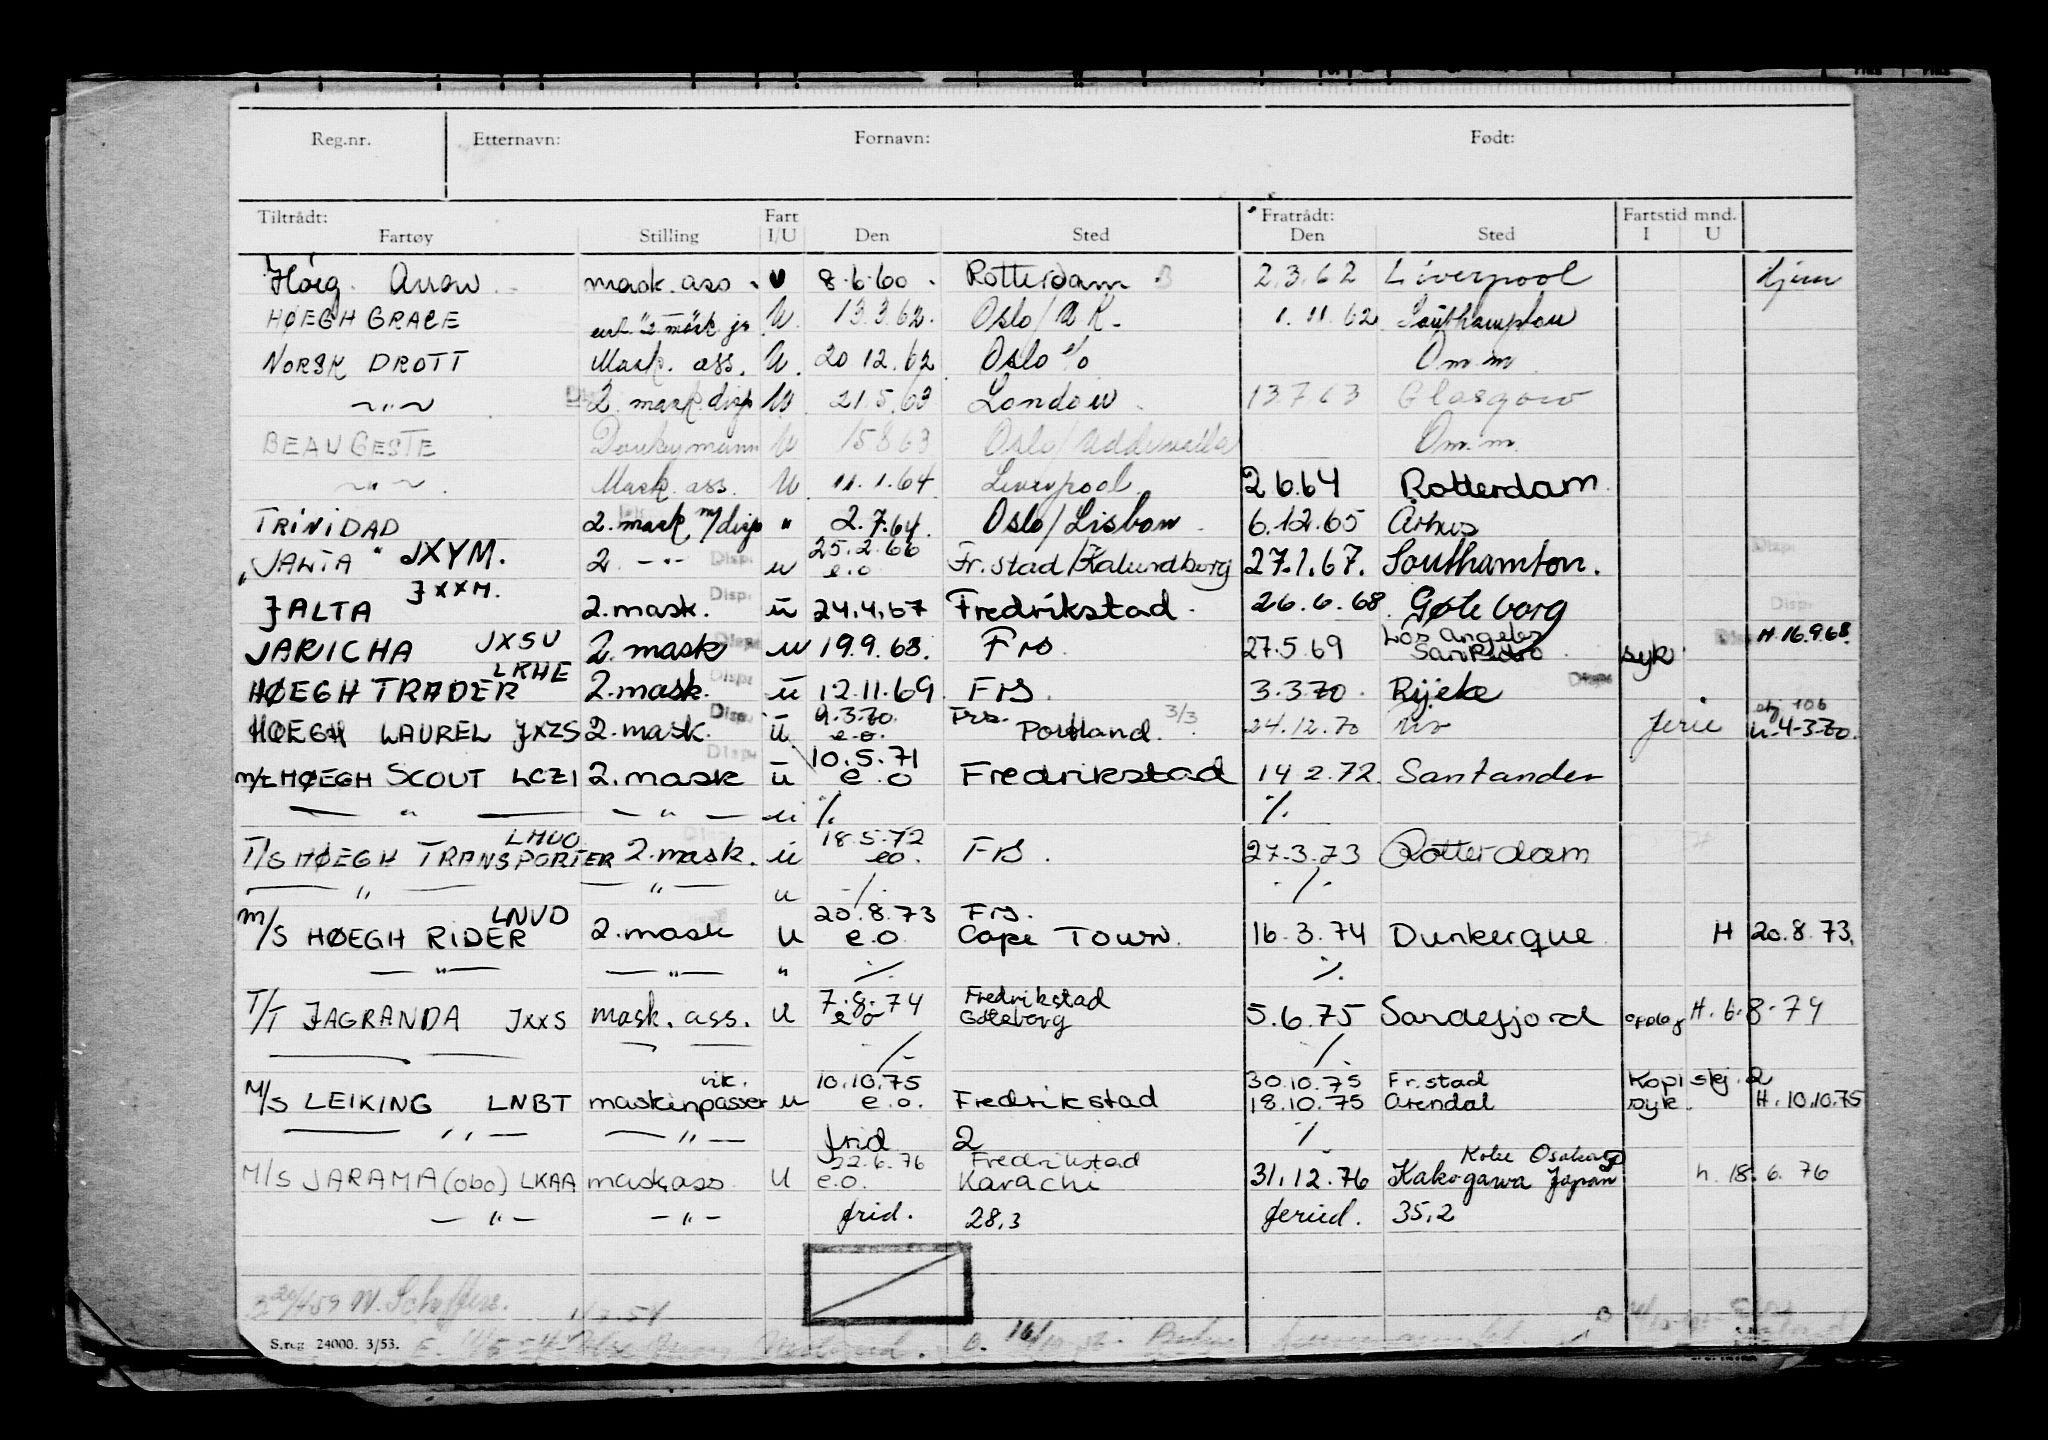 Reg.nr. Etternavn: Fornavn: Født:
Tiltrådt: Fart Fratrådt: Fartstid mnd.
Fartøy Stilling I/U Den Sted Den Sted I U
Høeg Arrow mask. ass U 8.6.60 Rotterdam 2.3.62 Liverpool hjem
HØEGH GRACE 2 mask jr U. 13.3.62. Oslo/UK. 1.11.62 Southampton
NORSK DROTT Mask. ass. U. 20 12.62 Oslo e/o Om.m
—"— 2. mask. disp U 21.5.63 London 13763 Glasgow
BEAU GESTE Donkeymann U 15863 Oslo/Uddevalla Om.m.
—"— Mask. ass. U 11.1.64 Liverpool 2 6.64 Rotterdam
TRINIDAD 2. mask m/disp " 2.7.64. Oslo/Lisbon 6.12.65 Århus
"JALTA" JXYM. 2. —"— Disp. u 25.2.66 e.o Fr.stad/Kalundborg 27.1.67. Southamton. Disp.
JALTA JXXM. 2.mask. Disp. u 24.4.67 Fredrikstad. 26.6.68 Gøteborg Disp.
JARICHA JXSU 2. mask Disp. u 19.9.68. Frs. 27.5.69 Los Angeles San Pedro syk H.16.9.68.
HØEGH TRADER LKHE 2.mask. Disp. u 12.11.69. Frs. 3.3.70. Rijeke Disp.
HØEGH LAUREL JXZS 2.mask. Disp. u 9.3.70. e.o. Frs. Portland. 3/3 24.12.70 ferie 106 h.4-3-70.
m/t HØEGH SCOUT LCZI 2.mask Disp. u 10.5.71 e.o Fredrikstad 14 2.72. Santander
— " — — " — u ·/. ·/.
T/S HØEGH TRANSPORTER LMUO 2.mask. u 18.5.72 eo. Frs. 27.3.73 Rotterdam
— " — — " — u -/. ·/.
m/S HØEGH RIDER LNVD 2.mask u 20.8.73 e.o. Frs. Cape Town. 16.3.74 Dunkerque H 20.8.73.
— " — — " — " ·/. ·/.
T/T JAGRANDA JXXS mask. ass. u 7.8.74 e.o Fredrikstad Göteborg 5.6.75 Sandefjord opplag H.6.8.74
— — — — ·/. ·/.
M/S LEIKING LNBT vik. maskinpasser u 10.10.75 e.o. Fredrikstad 30.10.75 Fr.stad Kopi skj. 2
18.10.75 Arendal syk. H.10.10.75
— " — — " — frid 2 ·/.
M/S JARAMA (obo) LKAA mask,ass U 22.6.76 e.o. Fredrikstad Karachi 31.12.76 Kobe Osaka Kakogawa Japan h. 18.6.76
— " — — " — frid. 28,3 feried. 35,2
S.reg 24000. 3/53.